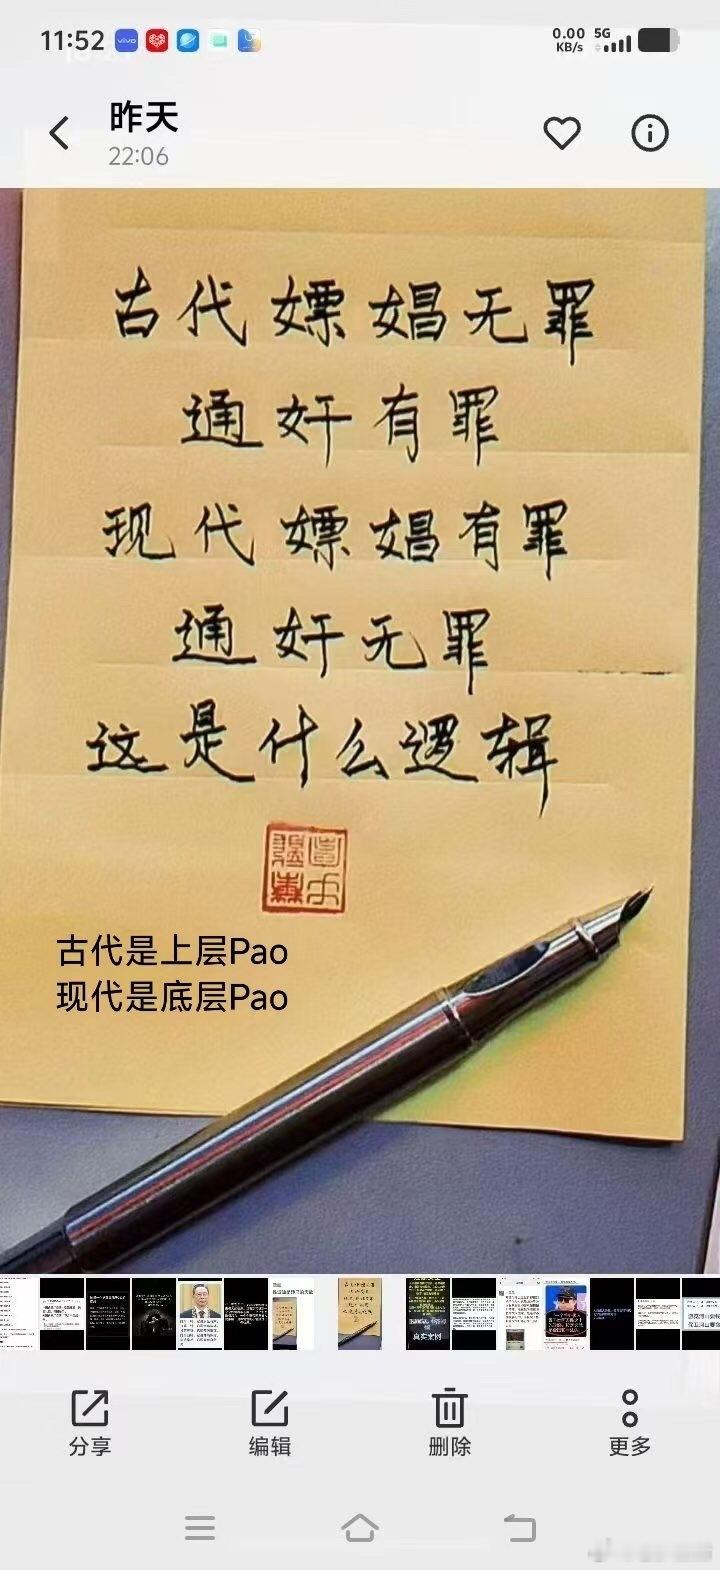 11:52
vivo
0.00 KB/s 5G
昨天
22:06
古代嫖娼无罪
通奸有罪
现代嫖娼有罪
通奸无罪
这是什么逻辑
古代是上层Pao
现代是底层Pao
真实案例
分享 编辑 删除 更多